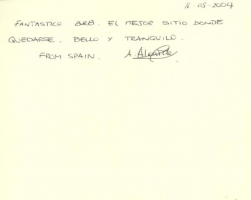 11-05-2004
FANTASTICO B&B. EL MEJOR SITIO DONDE
QUEDARSE. BELLO Y TRANQUILO.
FROM SPAIN. A.